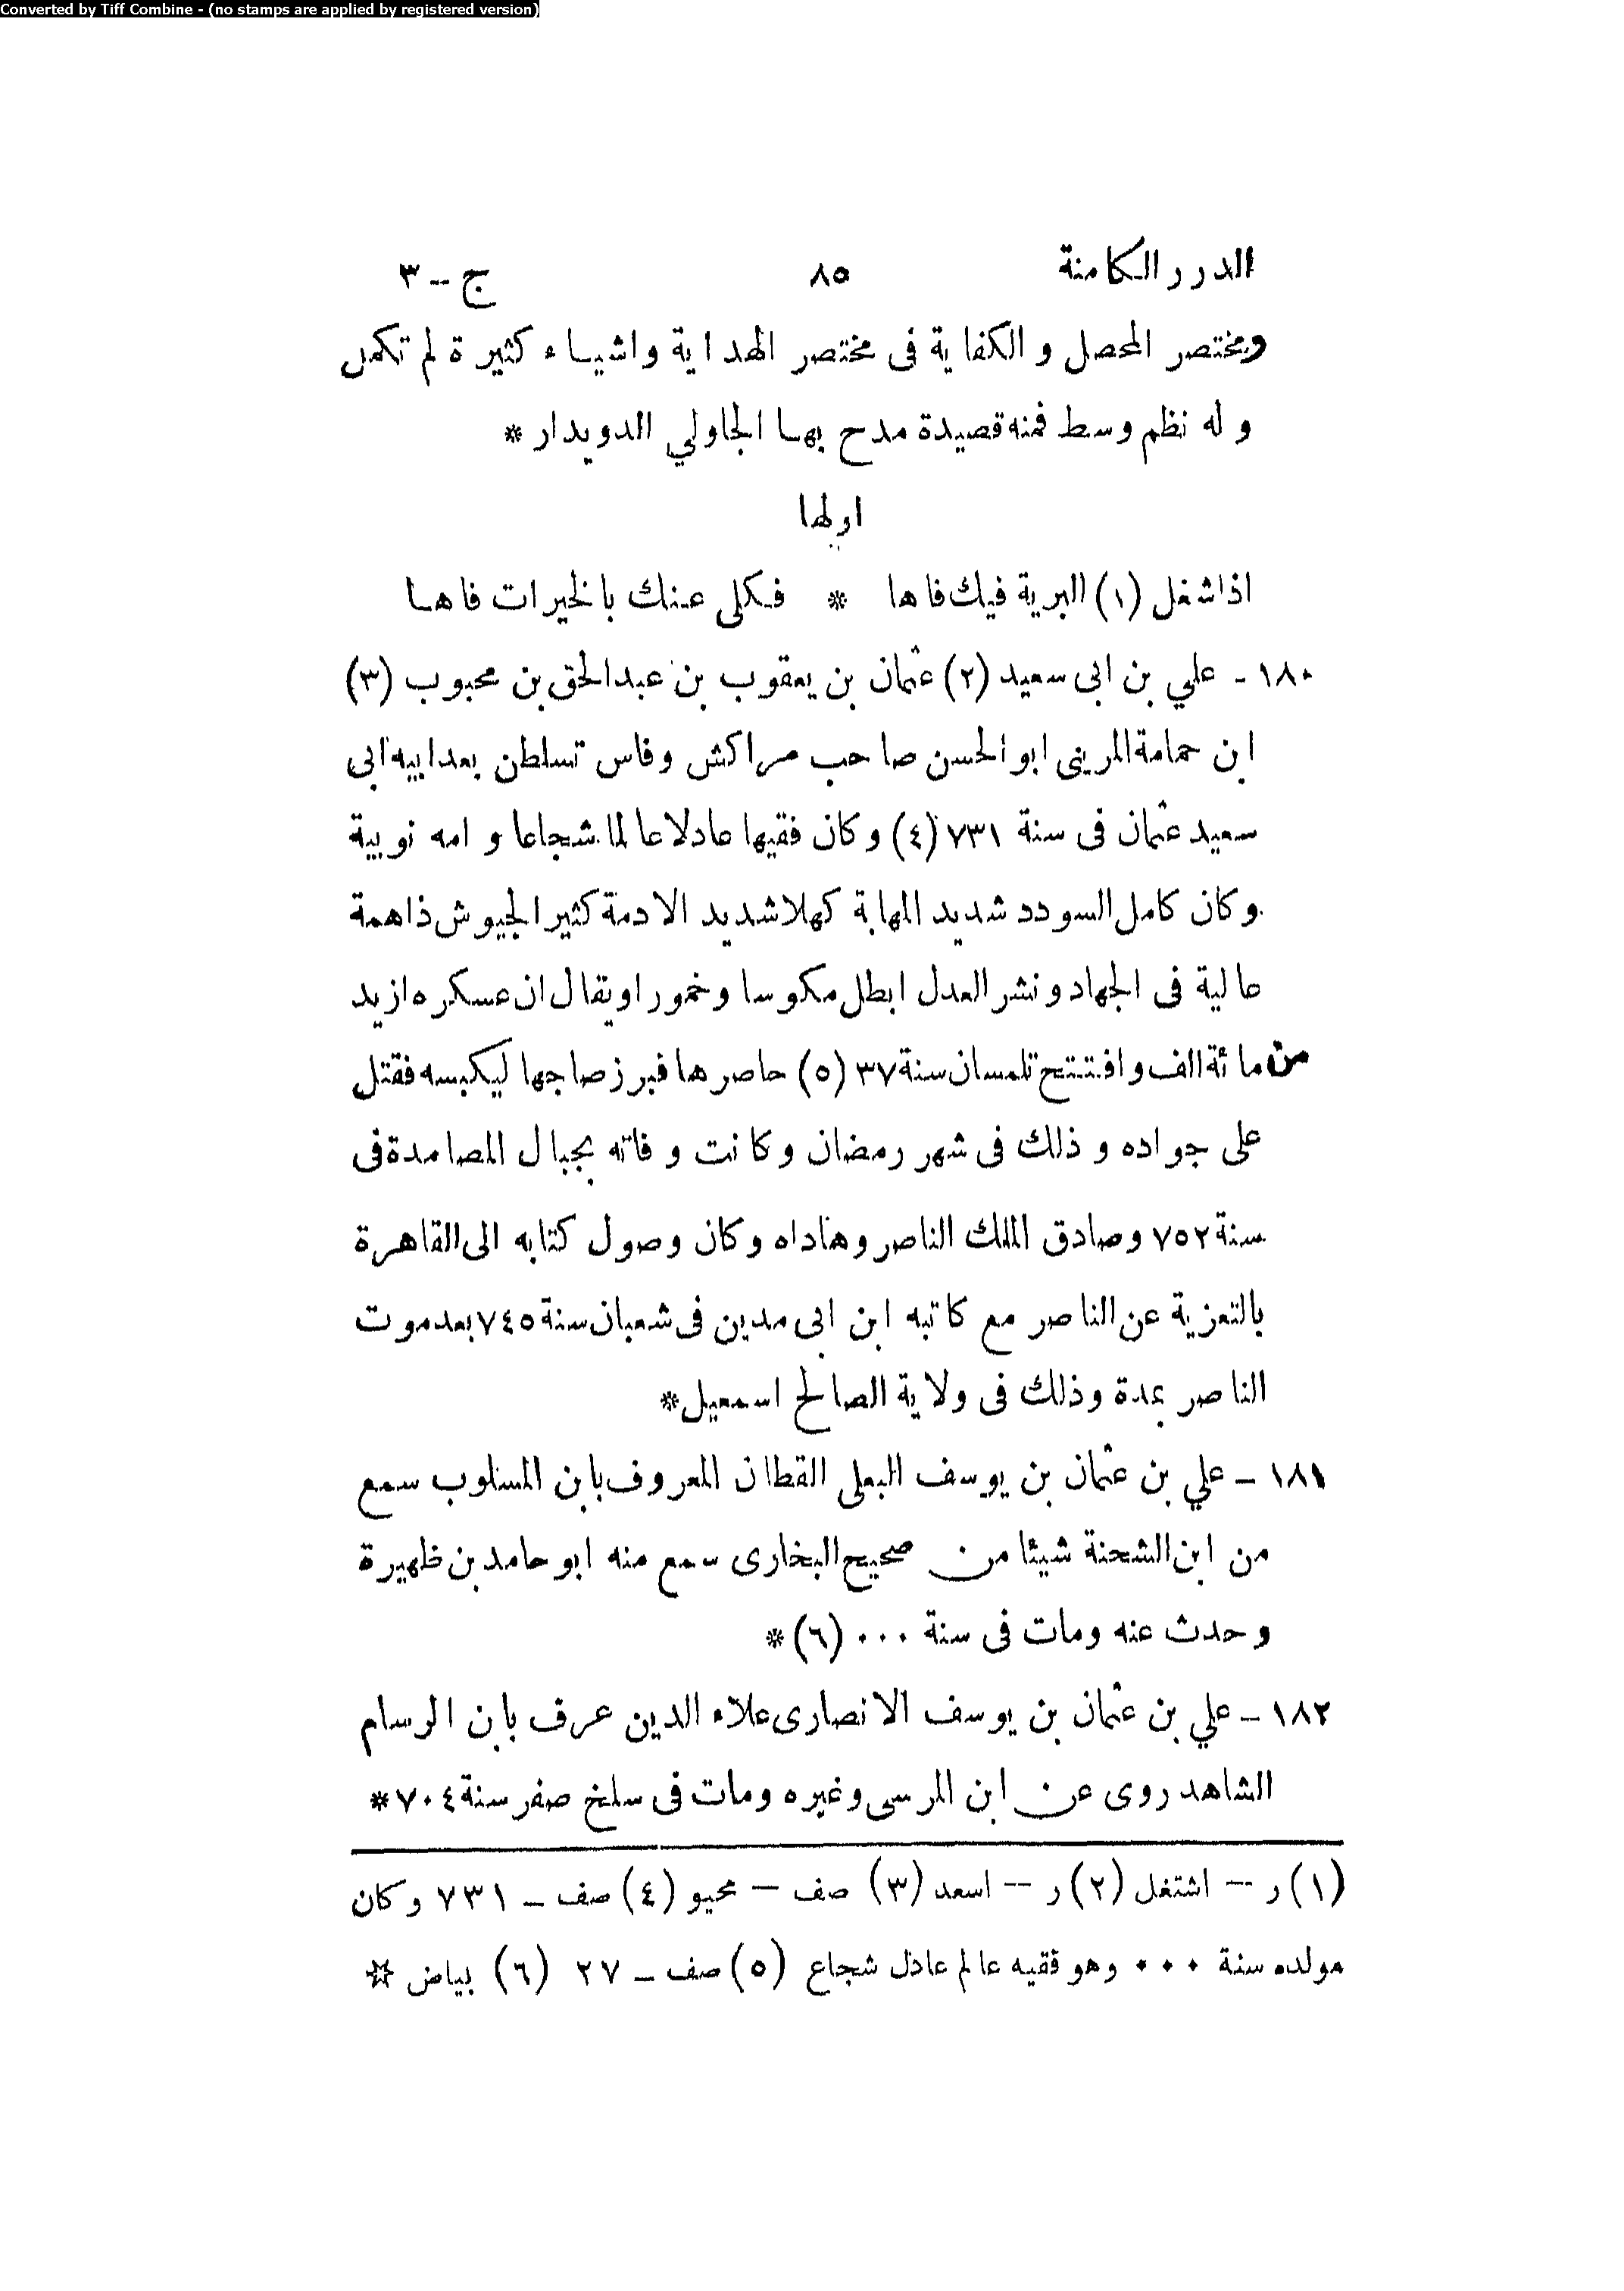 Converted by Tiff Combine - (no stamps are applied by registered version)
الدرر الكامنة ٨٥ ج -- ٣
ومختصر المحصل والكفاية فى مختصر الهداية واشياء كثيرة لم تكمل
وله نظم وسط فمنه قصيدة مدح بها الجاولي الدويدار *
اولها
اذا شغل (١) البرية فيك فاها * فكلى عنك بالخيرات فاها
١٨٠ - علي بن ابى سعيد (٢) عثمان بن يعقوب بن عبد الحق بن محبوب (٣)
ابن حمامة المرينى ابو الحسن صاحب مراكش وفاس تسلطن بعد ابيه ابى
سعيد عثمان فى سنة ٧٣١ (٤) وكان فقيها عادلا عالما شجاعا وامه نوبية
وكان كامل السودد شديد المهابة كهلا شديد الادمة كثير الجيوش ذا همة
عالية فى الجهاد ونشر العدل ابطل مكوسا وخمورا ويقال ان عسكره ازيد
من مائة الف وافتتح تلمسان سنة ٣٧ (٥) حاصرها فبرز صاحبها ليكبسه فقتل
على جواده وذلك فى شهر رمضان وكانت وفاته بجبال المصامدة فى
سنة ٧٥٢ وصادق الملك الناصر وهاداه وكان وصول كتابه الى القاهرة
بالتعزية عن الناصر مع كاتبه ابن ابى مدين فى شعبان سنة ٧٤٥ بعد موت
الناصر بمدة وذلك فى ولاية الصالح اسمعيل *
١٨١ - علي بن عثمان بن يوسف البعلى القطان المعروف بابن المسلوب سمع
من ابن الشحنة شيئا من صحيح البخارى سمع منه ابو حامد بن ظهيرة
وحدث عنه ومات فى سنة ٠٠٠ (٦) *
١٨٢ - علي بن عثمان بن يوسف الانصارى علاء الدين عرف بابن الرسام
الشاهد روى عن ابن المرسى وغيره ومات فى سلخ صفر سنة ٧٠٤ *
(١) ر -- اشتغل (٢) ر -- اسعد (٣) صف - محيو (٤) صف - ٧٣١ وكان
مولده سنة ٠٠٠ وهو فقيه عالم عادل شجاع (٥) صف - ٢٧ (٦) بياض ☆